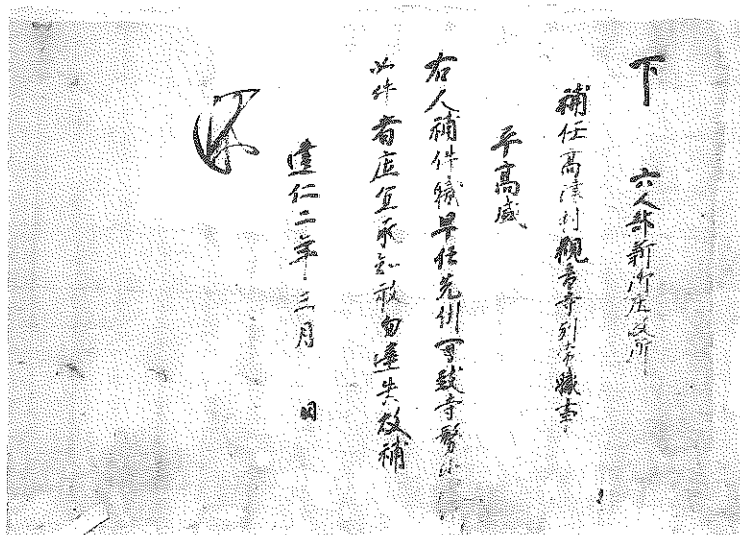 下 六人部新御庄政所
補任高津村観音寺別当職事
平高盛
右人補件職早任先例可致寺務之
如件者庄宜承知敢勿違失故補
建仁二年三月 日